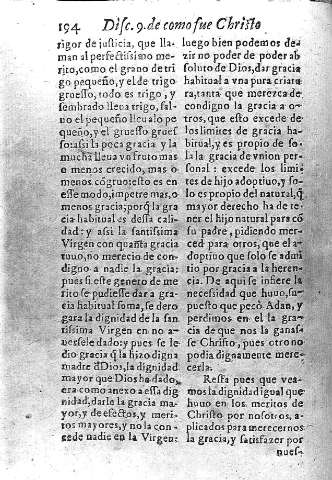 194 Disc. 9. de como fue Christo
rigor de justicia, que lla-
man al perfectissimo me-
rito, como el grano de tri
go pequeño, y el de trigo
gruesso, todo es trigo, y
sembrado lleua trigo, sal-
uo el pequeño lleualo pe
queño, y el gruesso grues
so: assi la poca gracia y la
mucha lleua vn fruto mas
o menos crecido, mas o
menos cógruo: esto es en
esse modo, impetre mas, o
menos gracia; porq̃ la gra
cia habitual es dessa cali-
dad: y assi la santissima
Virgen con quãta gracia
tuuo, no merecio de con-
digno a nadie la gracia:
pues si este genero de me-
rito se pudiesse dar a gra-
cia habitual suma, se dero
gara la dignidad de la san
tissima Virgen en no a-
uersele dado: y pues se le
dio gracia q̃ la hizo digna
madre d̃ Dios, la dignidad
mayor que Dios ha dado,
era como anexo a essa dig
nidad, darle la gracia ma-
yor, y de efectos, y meri-
tos mayores, y no la con-
cede nadie en la Virgen:
luego bien podemos de-
zir no poder de poder ab
soluto de Dios, dar gracia
habitual a vna pura criatu
ra, tanta que merezca de
condigno la gracia a o-
tros, que esto excede de
los limites de gracia ha-
bitual, y es propio de so-
la la gracia de vnion per-
sonal: excede los limi-
tes de hijo adoptiuo, y so-
lo es propio del natural, q̃
mayor derecho ha de te-
ner el hijo natural para có
su padre, pidiendo mer-
ced para otros, que el a-
doptiuo que solo se admi-
tio por gracia a la heren-
cia. De aqui se infiere la
necessidad que huuo, su-
puesto que pecò Adan, y
perdimos en el la gra-
cia de que nos la ganas-
se Christo, pues otro no
podia dignamente mere-
cerla.
Resta pues que vea-
mos la dignidad igual que
huuo en los meritos de
Christo por nosotros, a-
plicados para merecernos
la gracia, y satisfazer por
nues-